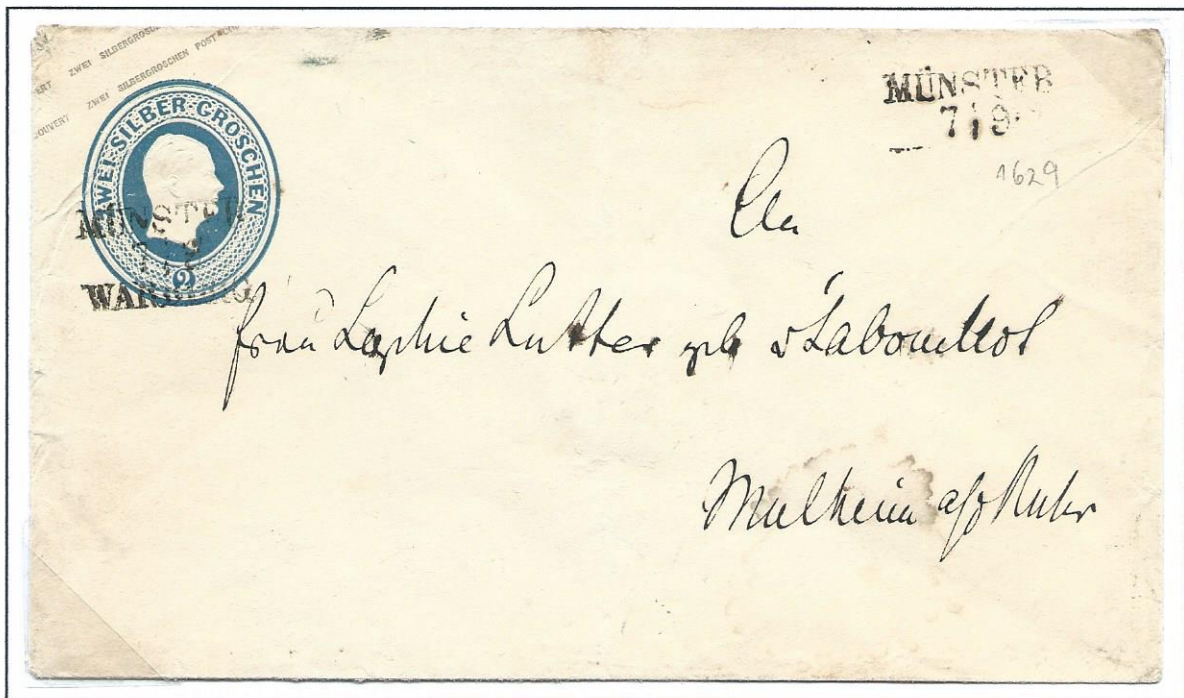 ART ZWEI SILBERGROSCHEN
COUVERT ZWEI SILBERGROSCHEN POST
ZWEI·SILBER·GROSCHEN
2
MÜNSTER
WARBURG
MÜNSTER
7 9
1629
An
Frau Sophie Lutter geb v Zabouillot
Mülheim a/d Ruhr